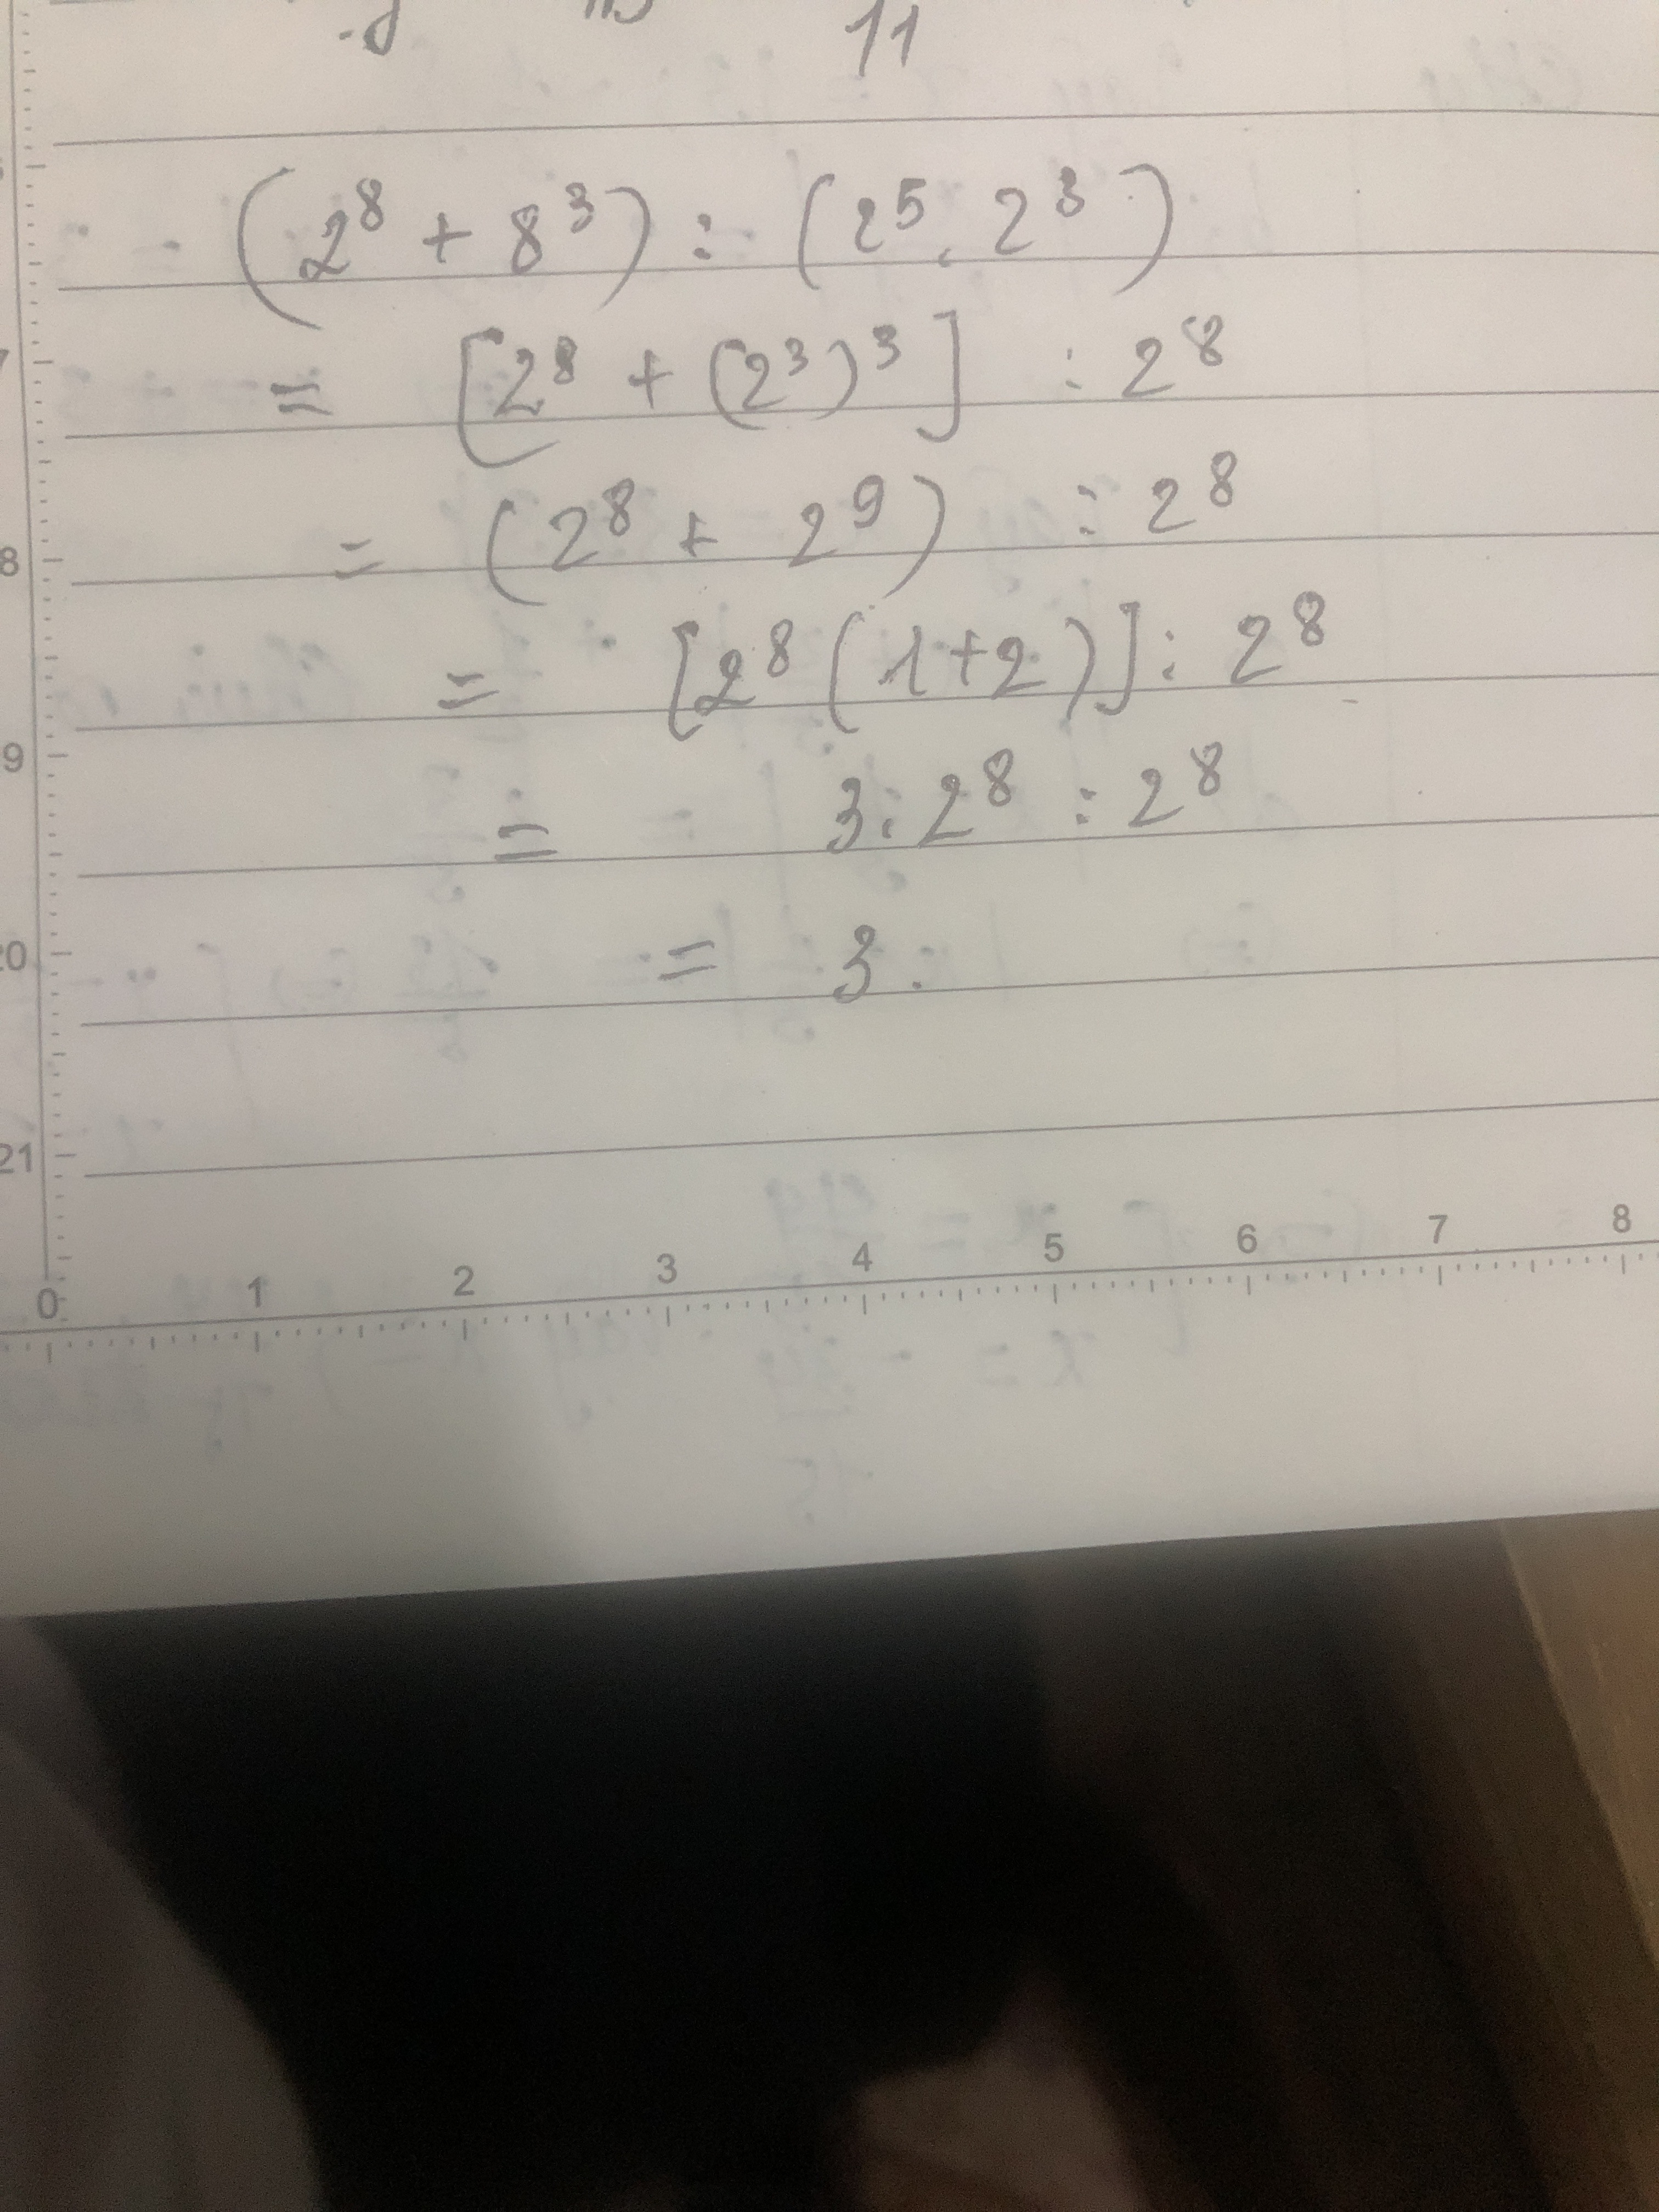 11
(2⁸ + 8³) : (2⁵ . 2³)
= [2⁸ + (2³)³] : 2⁸
= (2⁸ + 2⁹) : 2⁸
= [2⁸ (1+2)] : 2⁸
= 3 . 2⁸ : 2⁸
= 3 .
7
8
9
20
21
0 1 2 3 4 5 6 7 8